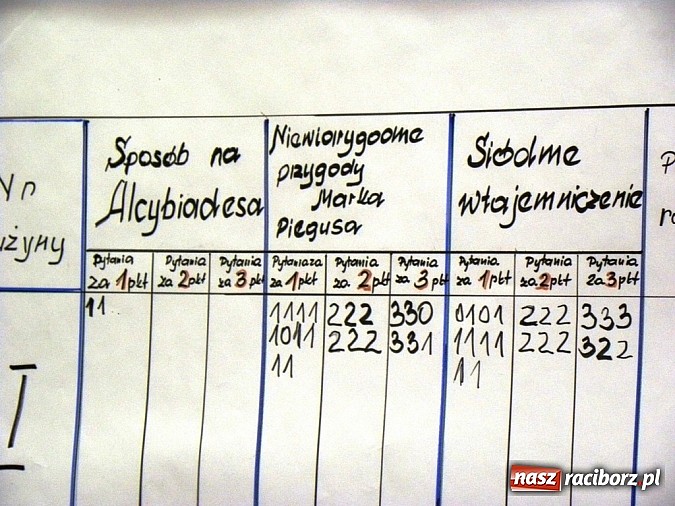 Nr
użyny
Sposób na
Alcybiadesa
Niewiarygodne
przygody
Marka
Piegusa
Siódme
wtajemniczenie
Pytania
za 1 pkt
Pytania
za 2 pkt
Pytania
za 3 pkt
Pytania za
1 pkt
Pytania
za 2 pkt
Pytania
za 3 pkt
Pytania
za 1 pkt
Pytania
za 2 pkt
Pytania
za 3 pkt
I
11
1111
1011
11
222
222
330
331
0101
1111
11
222
222
333
322
nasz raciborz.pl